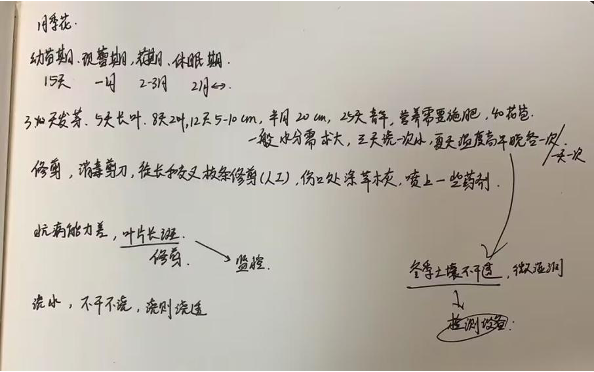 月季花.
幼苗期、现蕾期、花期、休眠期.
15天 一月 2-3月 2月
3-4天发芽、5天长叶、8天2叶,12天5-10cm,半月20cm,25天青年,营养需要施肥,40花苞.
一般水分需求大,三天浇一次水,夏天温度高早晚各一次/一天一次
修剪,消毒剪刀,徒长和交叉枝条修剪(人工),伤口处涂草木灰,喷上一些药剂.
抗病能力差,叶片长斑. 修剪
监控.
冬季土壤不干透,微湿润
检测设备:
浇水,不干不浇,浇则浇透